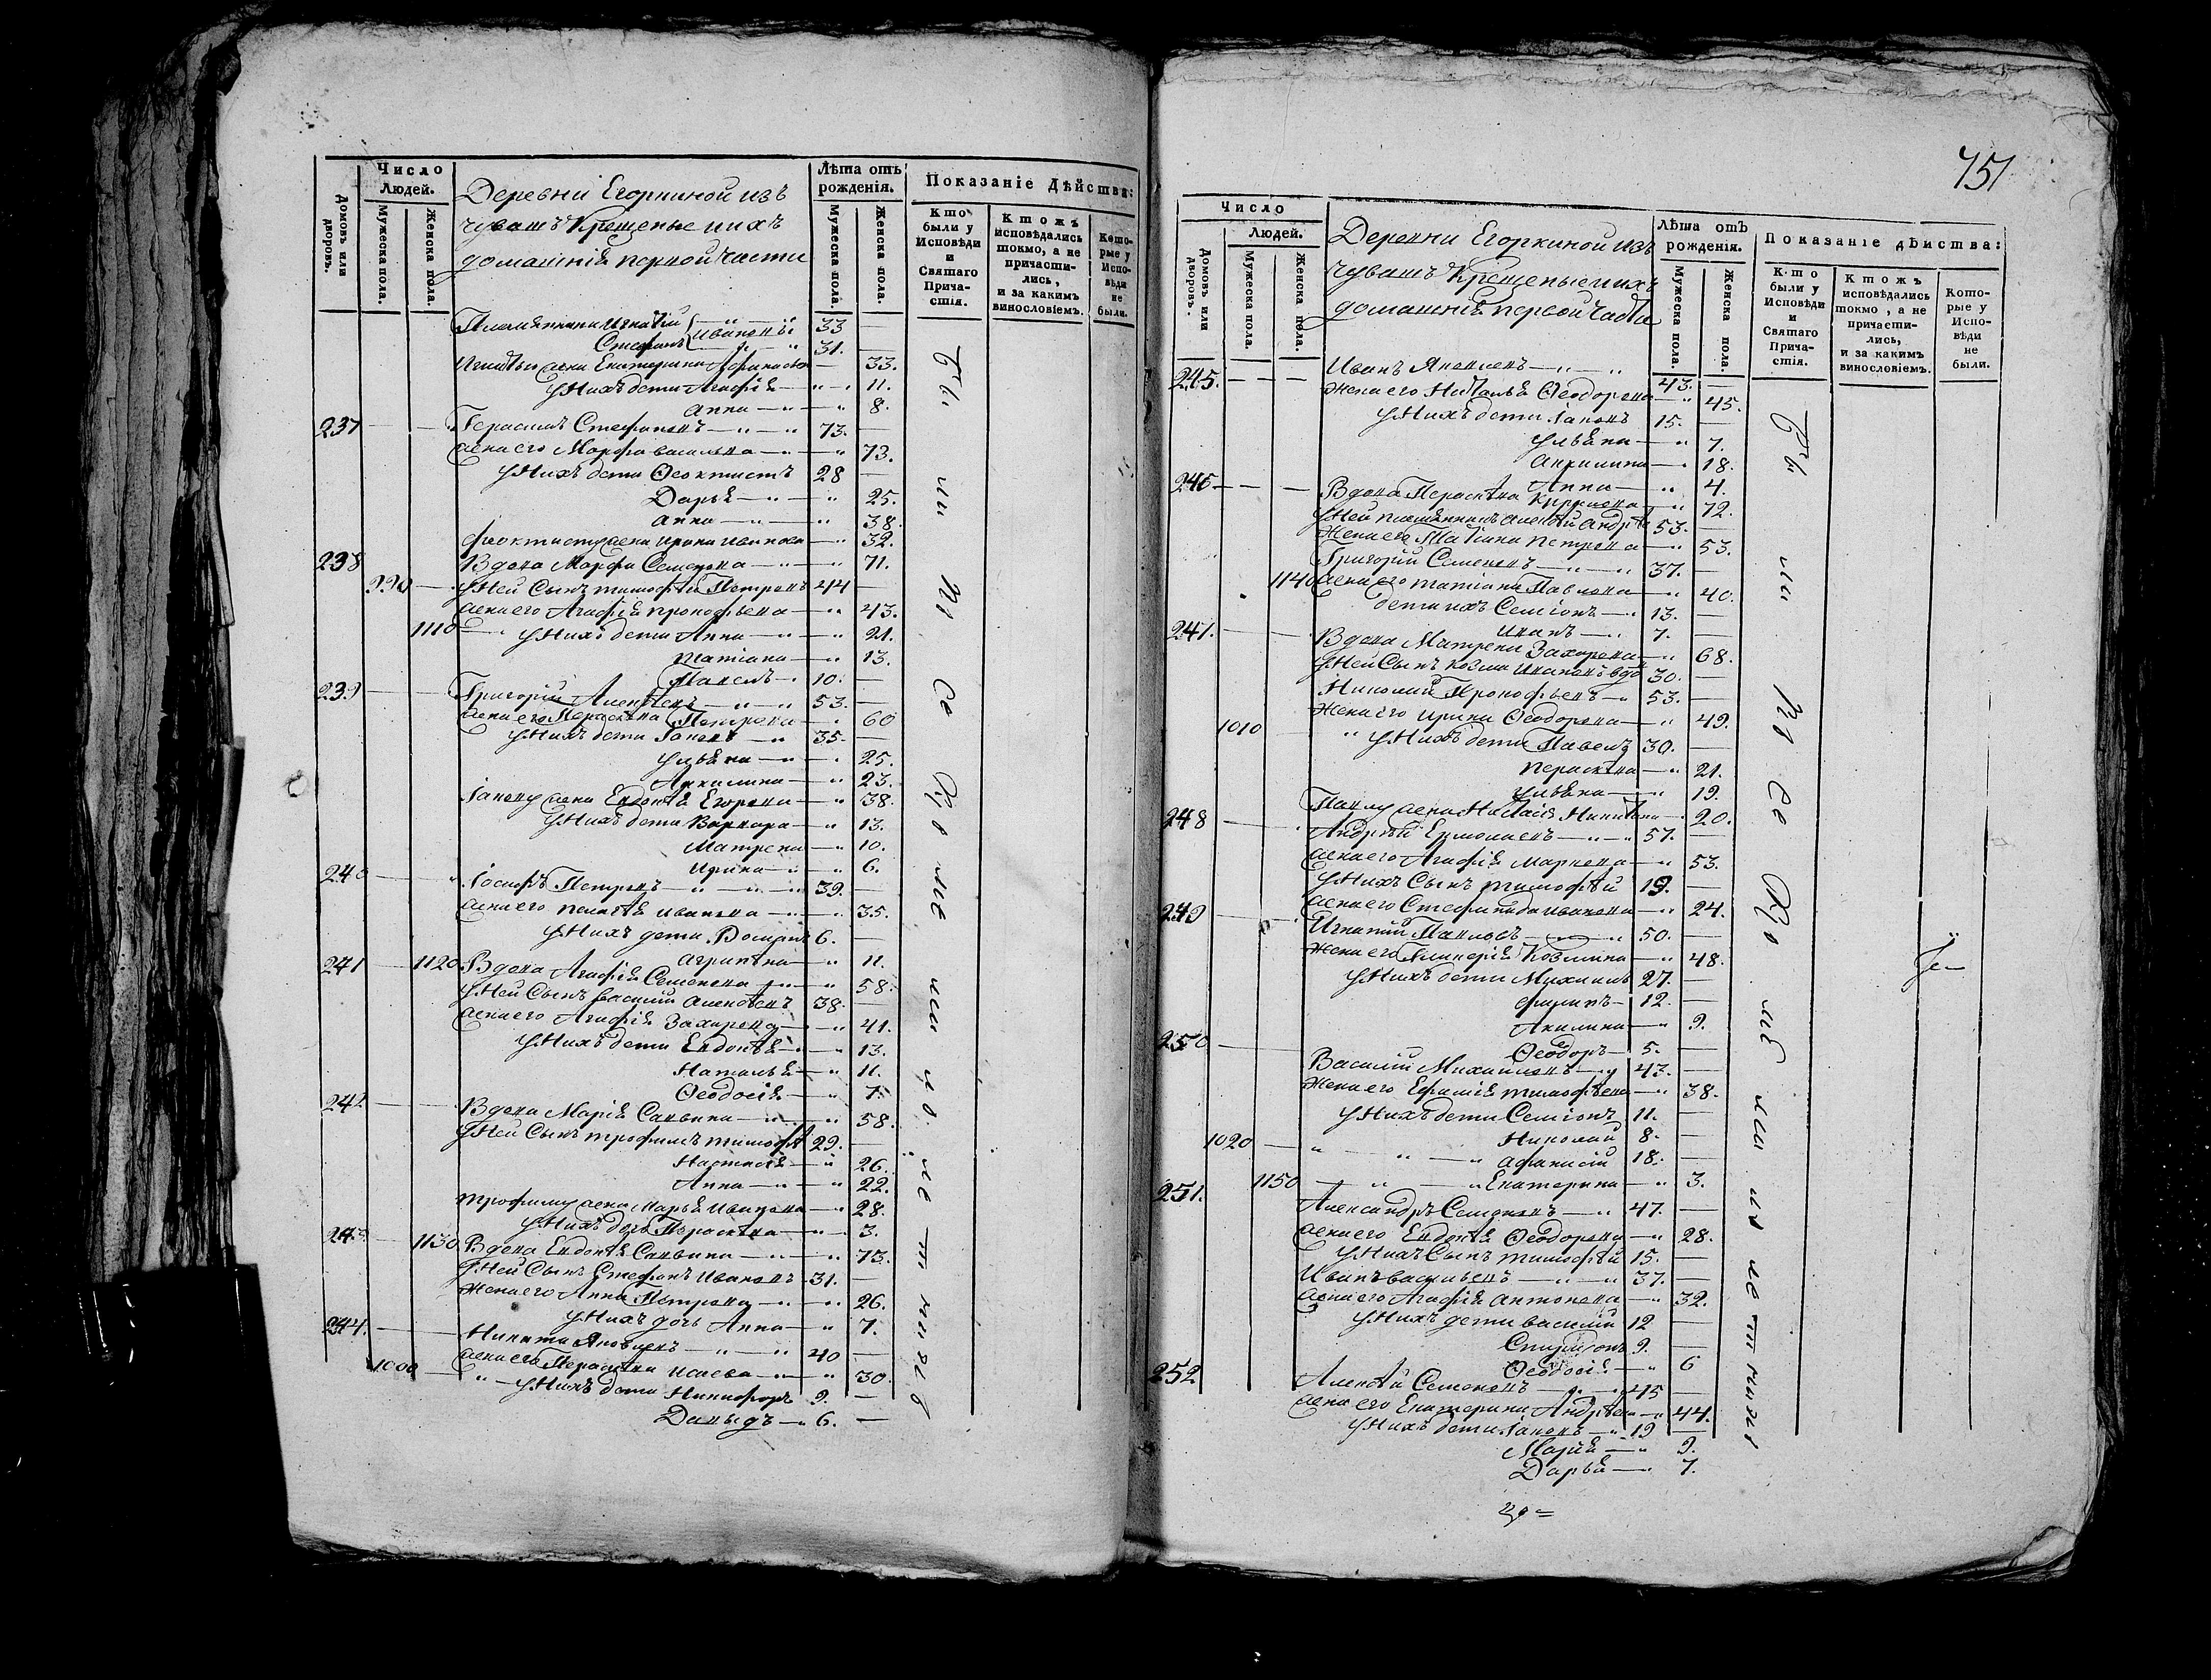 Число Людей.
Домовъ или дворовъ.
Мужеска пола.
Женска пола.
Деревни Егоркиной изъ
чувашъ Крещеные и ихъ
домашнія первой части
Лѣта отъ рожденія.
Мужеска пола.
Женска пола.
Показаніе Дѣйства:
Кто были у Исповѣди и Святаго Причастія.
Ктожъ исповѣдались токмо, а не причастились, и за какимъ винословіемъ.
Которые у Исповѣди не были.
Племянники Игнатій Ивановы 33
Стефанъ 31.
Игнатья жена Екатерина 33.
У Нихъ дети Агафія 11.
Анна 8.
237 Герасимъ Стефановъ 73.
Жена его Марфа Васильева 73.
У Нихъ дети Ѳеоктистъ 28
Дарья 25.
Анна 38.
Феоктисту жена Ирина Иванова 32.
238 Вдова Марфа Семенова 71.
990 У Ней Сынъ Тимофей Петровъ 44
Жена его Агафія Прокофьева 43.
1110 У Нихъ дети Анна 21.
Татіана 13.
Павелъ 10.
239 Григорій Алексѣевъ 53.
Жена его Параскева Петрова 60
У Нихъ дети Іаковъ 35.
Ульяна 25.
Акилина 23.
Іакову жена Евдокія Егорова 38.
У Нихъ дети Варвара 13.
Матрена 10.
Ирина 6.
240 Іосифъ Петровъ 39.
Жена его Иванова 35.
У Нихъ дети 6.
11.
241 1120 Вдова Агафія Семенова 58.
У Ней Сынъ Василій Алексѣевъ 38.
Жена его Агафія Захарова 41.
У Нихъ дети Евдокія 13.
Наталья 11.
Ѳеодосія 7.
242 Вдова Марія Савина 58.
У Ней Сынъ Трофимъ Тимофѣ 29.
Настасія 26.
Анна 22.
Трофиму жена Марья Иванова 28.
У Нихъ дочь Параскева 3.
243 1130 Вдова Евдокія Савина 73.
У Ней Сынъ Стефанъ Ивановъ 31.
Жена его Анна Петрова 26.
У Нихъ дочь Анна 7.
244. Никита Яковлевъ 40
Жена его Параскева Исаева 30.
1000 У Нихъ дети Никифоръ 9.
Давыдъ 6.
751
Число Людей.
Домовъ или дворовъ.
Мужеска пола.
Женска пола.
Деревни Егоркиной изъ
чувашъ Крещеные и ихъ
домашнія первой части
Лѣта отъ рожденія.
Мужеска пола.
Женска пола.
Показаніе дѣйства:
Кто были у Исповѣди и Святаго Причастія.
Ктожъ исповѣдались токмо, а не причастились, и за какимъ винословіемъ.
Которые у Исповѣди не были.
245. Иванъ Яковлевъ 43.
Жена его Наталья Ѳеодорова 45.
У Нихъ дети Іаковъ 15.
Ульяна 7.
Акилина 18.
Анна 4.
246 Вдова Параскева 72.
У Ней племянникъ Алексѣй Андрѣ 53.
Жена его Татіана Петрова 53.
Григорій Семеновъ 37.
1140 Жена его Татіана Павлова 40.
дети ихъ Семіонъ 13.
Иванъ 7.
247. Вдова Матрена Захарова 68.
У Ней Сынъ Козма Ивановъ вдовъ 30.
Николай Прокофьевъ 53.
Жена его Ирина Ѳеодорова 49.
1010 У Нихъ дети Павелъ 30.
Параскева 21.
Ульяна 19.
Павлу жена Настасія Никитина 20.
248 Андрей Ермолаевъ 57.
Жена его Агафія Маркова 53.
У Нихъ Сынъ Тимофѣй 19.
Жена его Стефанида Иванова 24.
249 Игнатій Павловъ 50.
Жена его Гликерія Козмина 48.
У Нихъ дети Михаилъ 27.
Филипъ 12.
Акилина 9.
Ѳеодоръ 5.
250 Василій Михайловъ 43.
Жена его Ефимія Тимофѣева 38.
У Нихъ дети Семіонъ 11.
1020 Николай 8.
Афанасій 18.
1150 Екатерина 3.
251. Александръ Семеновъ 47.
Жена его Евдокія Ѳеодорова 28.
У Нихъ Сынъ Тимофѣй 15.
Иванъ Васильевъ 37.
Жена его Агафія Антонова 32.
У Нихъ дети Василій 12
Спиридонъ 9.
Ѳеодосія 6
252 Алексѣй Семеновъ 45
Жена его Екатерина Андрѣева 44.
У Нихъ дети Іаковъ 19
Марія 9.
Дарья 7.